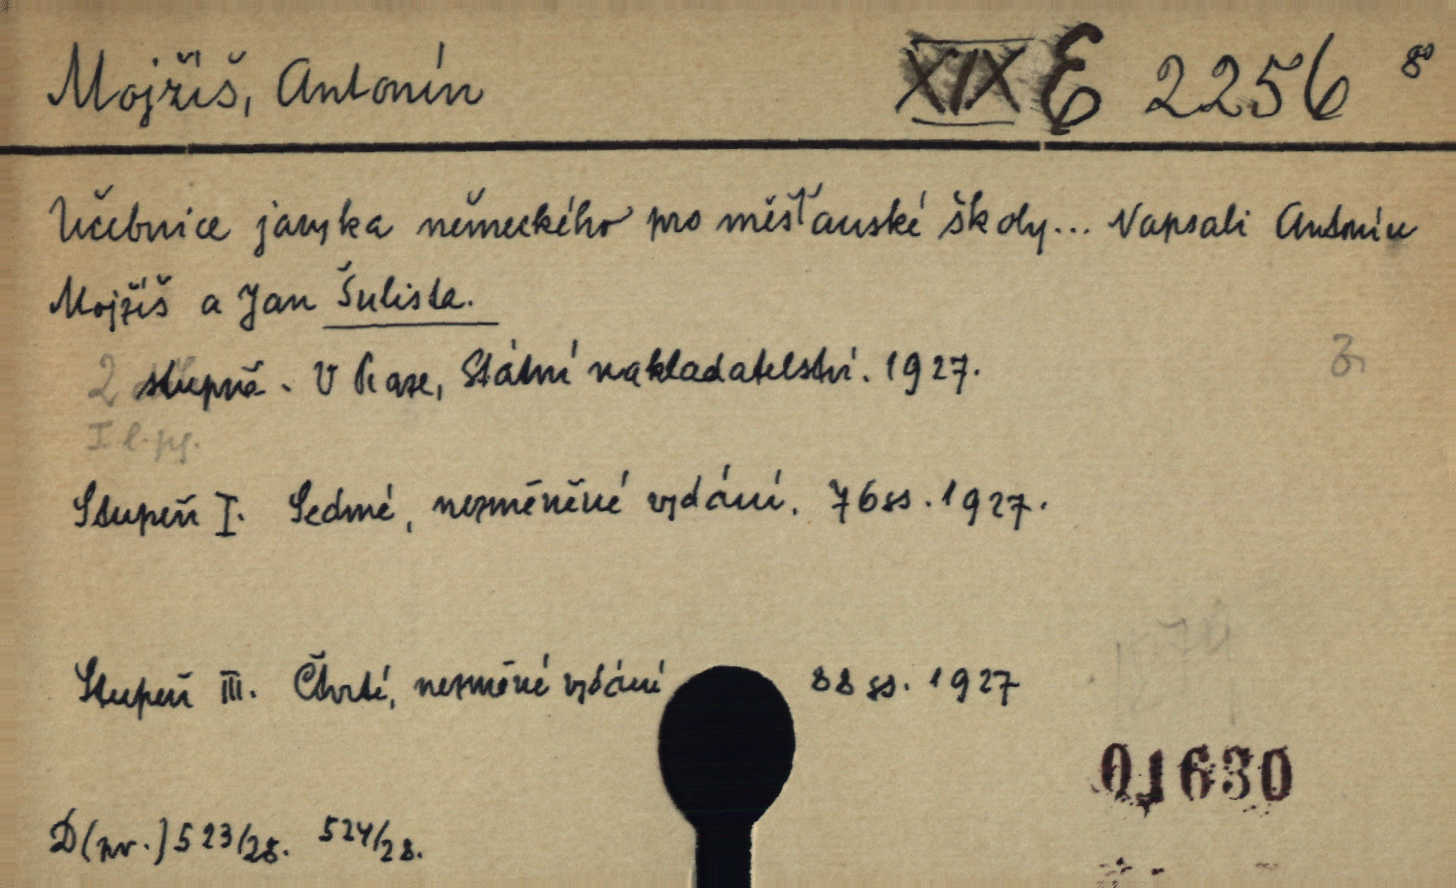 Mojžíš, Antonín XIX E 2256 8°
Učebnice jazyka německého pro měšťanské školy... Napsali Antonín
Mojžíš a Jan Šulista.
2 stupně. V Praze, Státní nakladatelství. 1927. 3
I
Stupeň I. Sedmé, nezměněné vydání. 76 ss. 1927.
Stupeň III. Čtvrté, nezměné vydání 88 ss. 1927
01630
D(pr.) 523/28. 524/28.